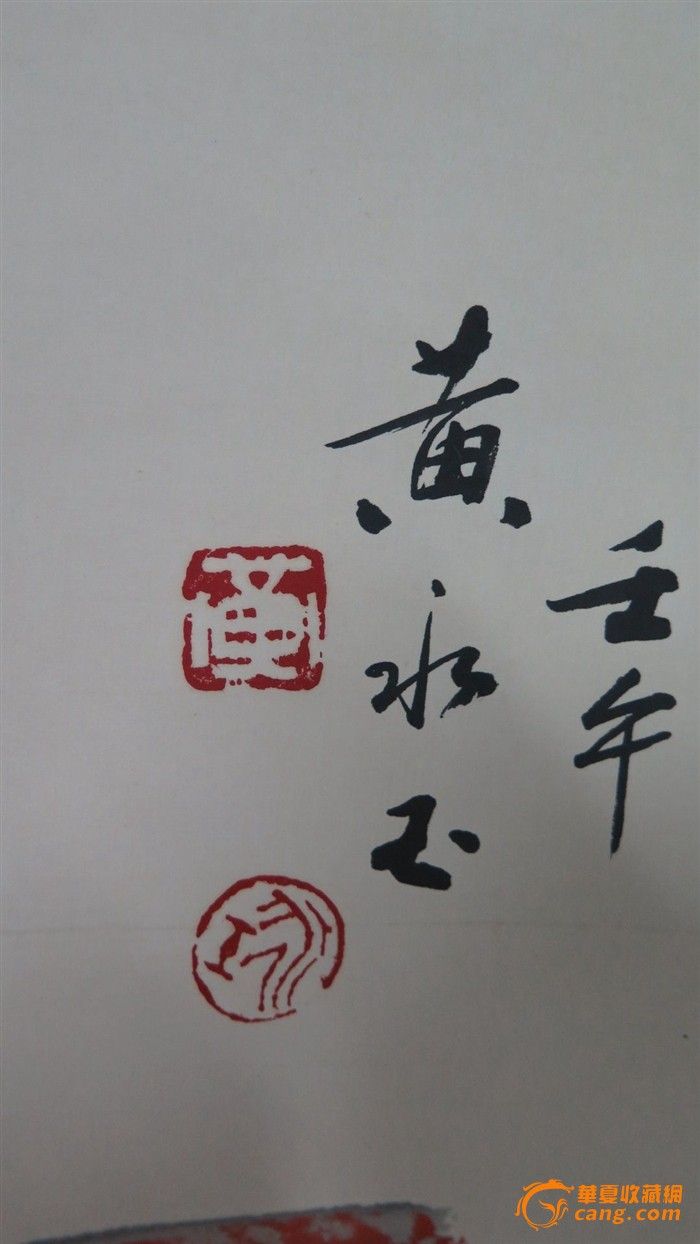 壬午
黄永玉
華夏收藏網
cang.com